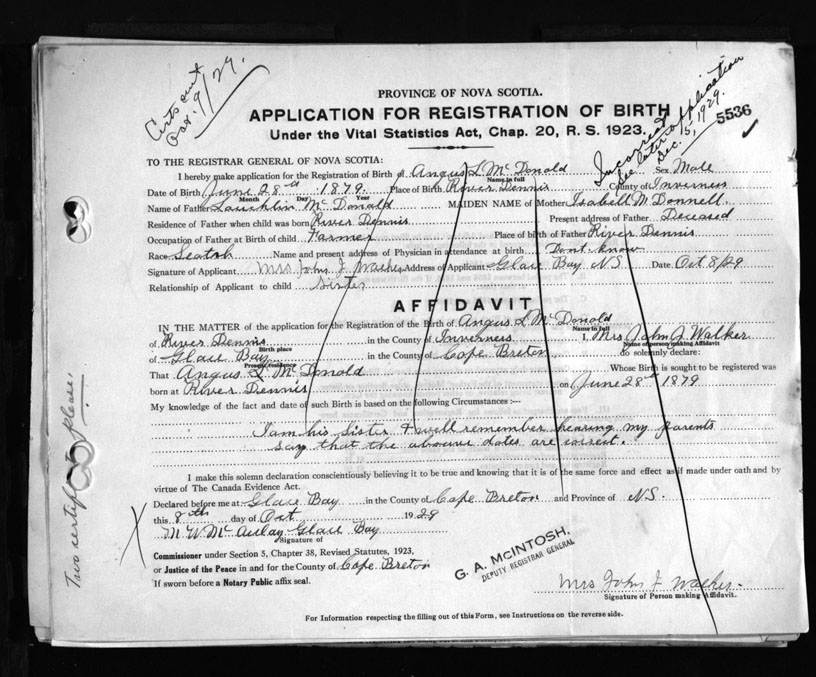 Certs sent
Oct. 9/29.
PROVINCE OF NOVA SCOTIA.
APPLICATION FOR REGISTRATION OF BIRTH
Under the Vital Statistics Act, Chap. 20, R. S. 1923.
Incorrect
See later application
Dec. 15, 1929.
5536
TO THE REGISTRAR GENERAL OF NOVA SCOTIA:
I hereby make application for the Registration of Birth of Angus L McDonald Sex Male
Name in full
Date of Birth June 28th 1879. Place of Birth River Dennis County of Inverness
Month Day Year
Name of Father Lauchlin McDonald MAIDEN NAME of Mother Isabell McDonnell
Residence of Father when child was born River Dennis Present address of Father Deceased
Occupation of Father at Birth of child Farmer Place of birth of Father River Dennis
Race Scotch Name and present address of Physician in attendance at birth Dont know
Signature of Applicant Mrs. John J. Walker Address of Applicant Glace Bay NS Date Oct 8/29
Relationship of Applicant to child Sister
AFFIDAVIT
IN THE MATTER of the application for the Registration of the Birth of Angus L McDonald
Name in full
of River Dennis in the County of Inverness I, Mrs John J. Walker
Birth place Name of person making Affidavit
of Glace Bay in the County of Cape Breton do solemnly declare:
Present residence
That Angus L McDonald Whose Birth is sought to be registered was
born at River Dennis on June 28th 1879
My knowledge of the fact and date of such Birth is based on the following Circumstances :—
I am his sister & well remember hearing my parents
say that the above dates are correct.
I make this solemn declaration conscientiously believing it to be true and knowing that it is of the same force and effect as if made under oath and by
virtue of The Canada Evidence Act.
Declared before me at Glace Bay in the County of Cape Breton and Province of NS.
this 8th day of Oct 1929
M W McAulay Glace Bay
Signature of
Commissioner under Section 5, Chapter 38, Revised Statutes, 1923,
or Justice of the Peace in and for the County of Cape Breton
If sworn before a Notary Public affix seal.
G. A. McINTOSH,
DEPUTY REGISTRAR GENERAL
Mrs John J Walker.
Signature of Person making Affidavit.
For Information respecting the filling out of this Form, see Instructions on the reverse side.
Two certifs please.